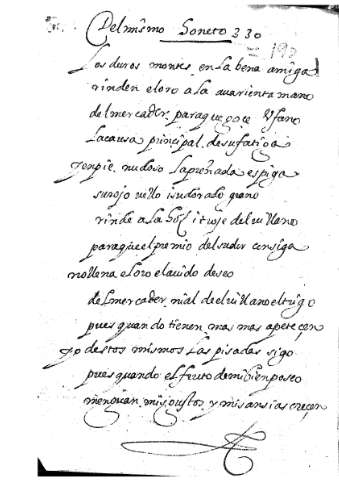 Del mismo Soneto 330
= 193
Los duros montes en la bena amiga
rinden el oro a la auarienta mano
del mercader, para que goçe Vfano
la causa principal de su fatiga
rompie nudoso la preñada espiga
su rojo uello i su dorado grano
rinde a la hoz i troje del uillano
para que el premio del sudor consiga
no llena el oro el auido deseo
del mercader, ni al del uillano el trigo
pues quando tienen mas mas apeteçen
yo destos mismos las pisadas sigo
pues quando el fruto de mi bien poseo
menguan mis gustos y mis ansias creçen